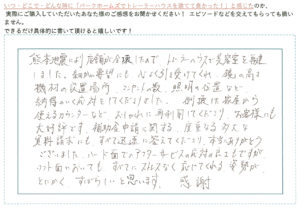 いつ・どこで・どんな時に「パークホームズでトレーラーハウスを建てて良かった！」と感じたのか、
実際にご購入していただいたあなた様のご感想をお聞かせください！ エピソードなどを交えてもらっても構いません。
できるだけ具体的に書いて頂けると嬉しいです！
熊本地震により店舗が全壊したので、トレーラーハウスで美容室を建
しました。細かい要望にも 心よく引き受けてくれ、 の高さ
機材の位置場所、コンセントの数、照明の位置など
納得のいく対応をしてくださりました。 も 客 から
使えるカウンターなど 再利用してくださり、お客様にも
大好評です。補助金申請に関する、度重なる膨大な
資料請求にも すべて迅速に答えてくださり、本当にありがとう
ございました。ハード面でのアフターサービスの対応はもちろんですが
ソフト面においても すべてにスムーズに応じてくれる姿勢が
とにかく すばらしいと思います。 感謝